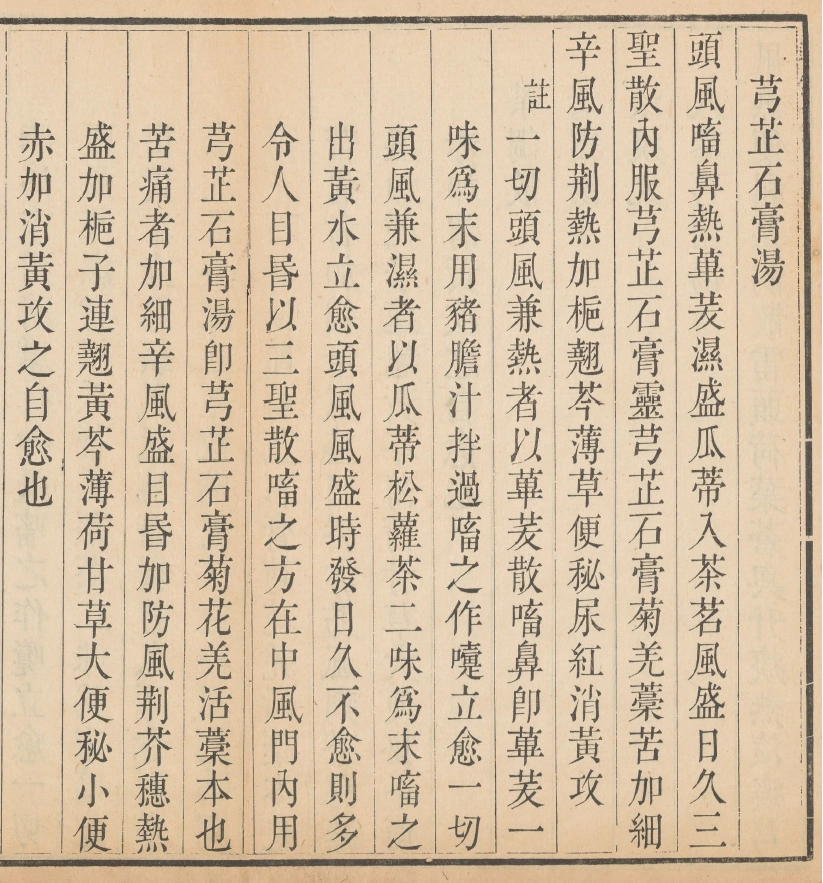 芎芷石膏湯
頭風㗜鼻熱蓽茇濕盛瓜蒂入茶茗風盛日久三
聖散內服芎芷石膏靈芎芷石膏菊羌藁苦加細
辛風防荆熱加梔翹芩薄草便秘尿紅消黃攻
註一切頭風兼熱者以蓽茇散㗜鼻卽蓽茇一
味爲末用豬膽汁拌過㗜之作嚏立愈一切
頭風兼濕者以瓜蒂松蘿茶二味爲末㗜之
出黃水立愈頭風風盛時發日久不愈則多
令人目昬以三聖散㗜之方在中風門內用
芎芷石膏湯卽芎芷石膏菊花羌活藁本也
苦痛者加細辛風盛目昬加防風荆芥穗熱
盛加梔子連翹黃芩薄荷甘草大便秘小便
赤加消黃攻之自愈也